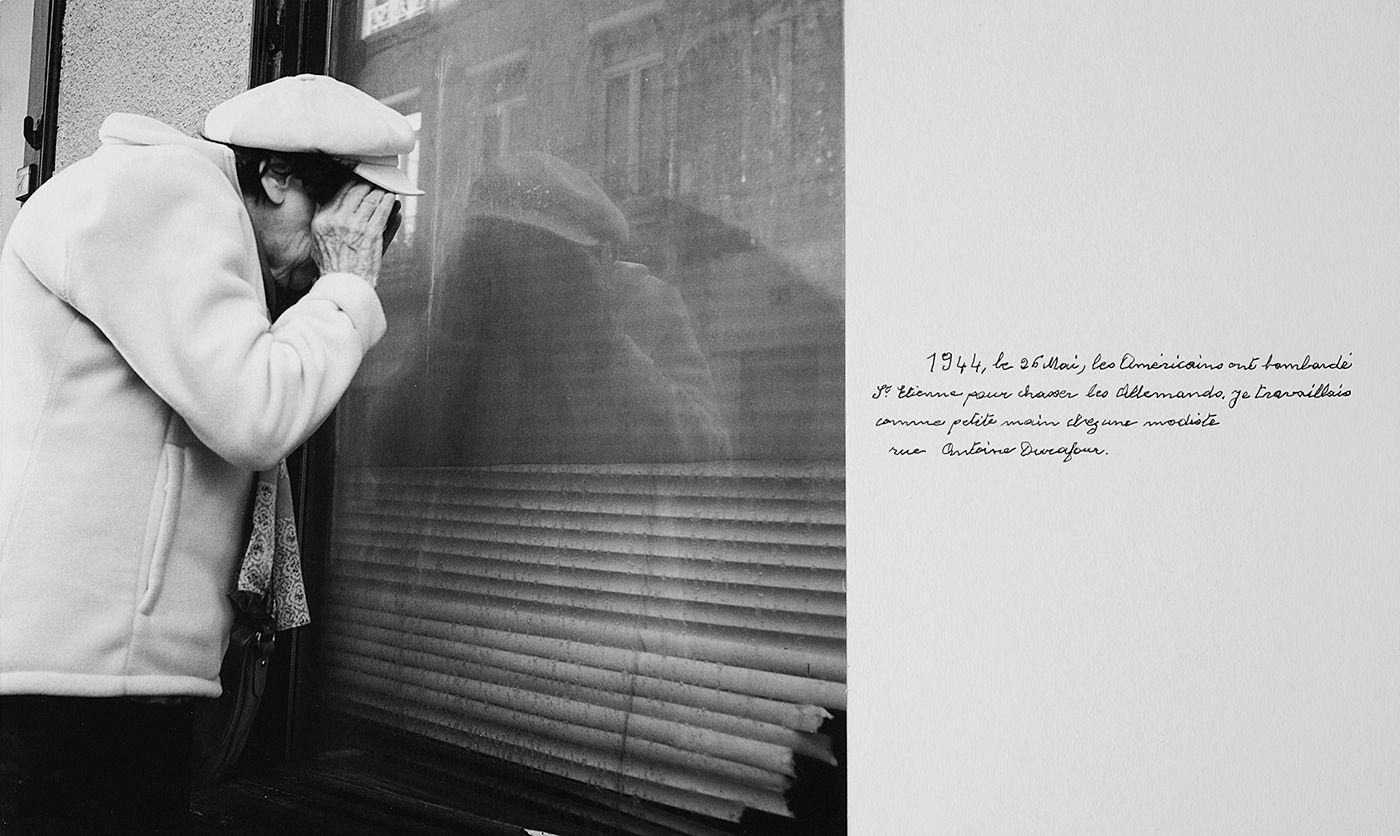 1944, le 26 Mai, les Américains ont bombardé
St. Etienne pour chasser les Allemands. je travaillais
comme petite main chez une modiste
rue Antoine Durafour.